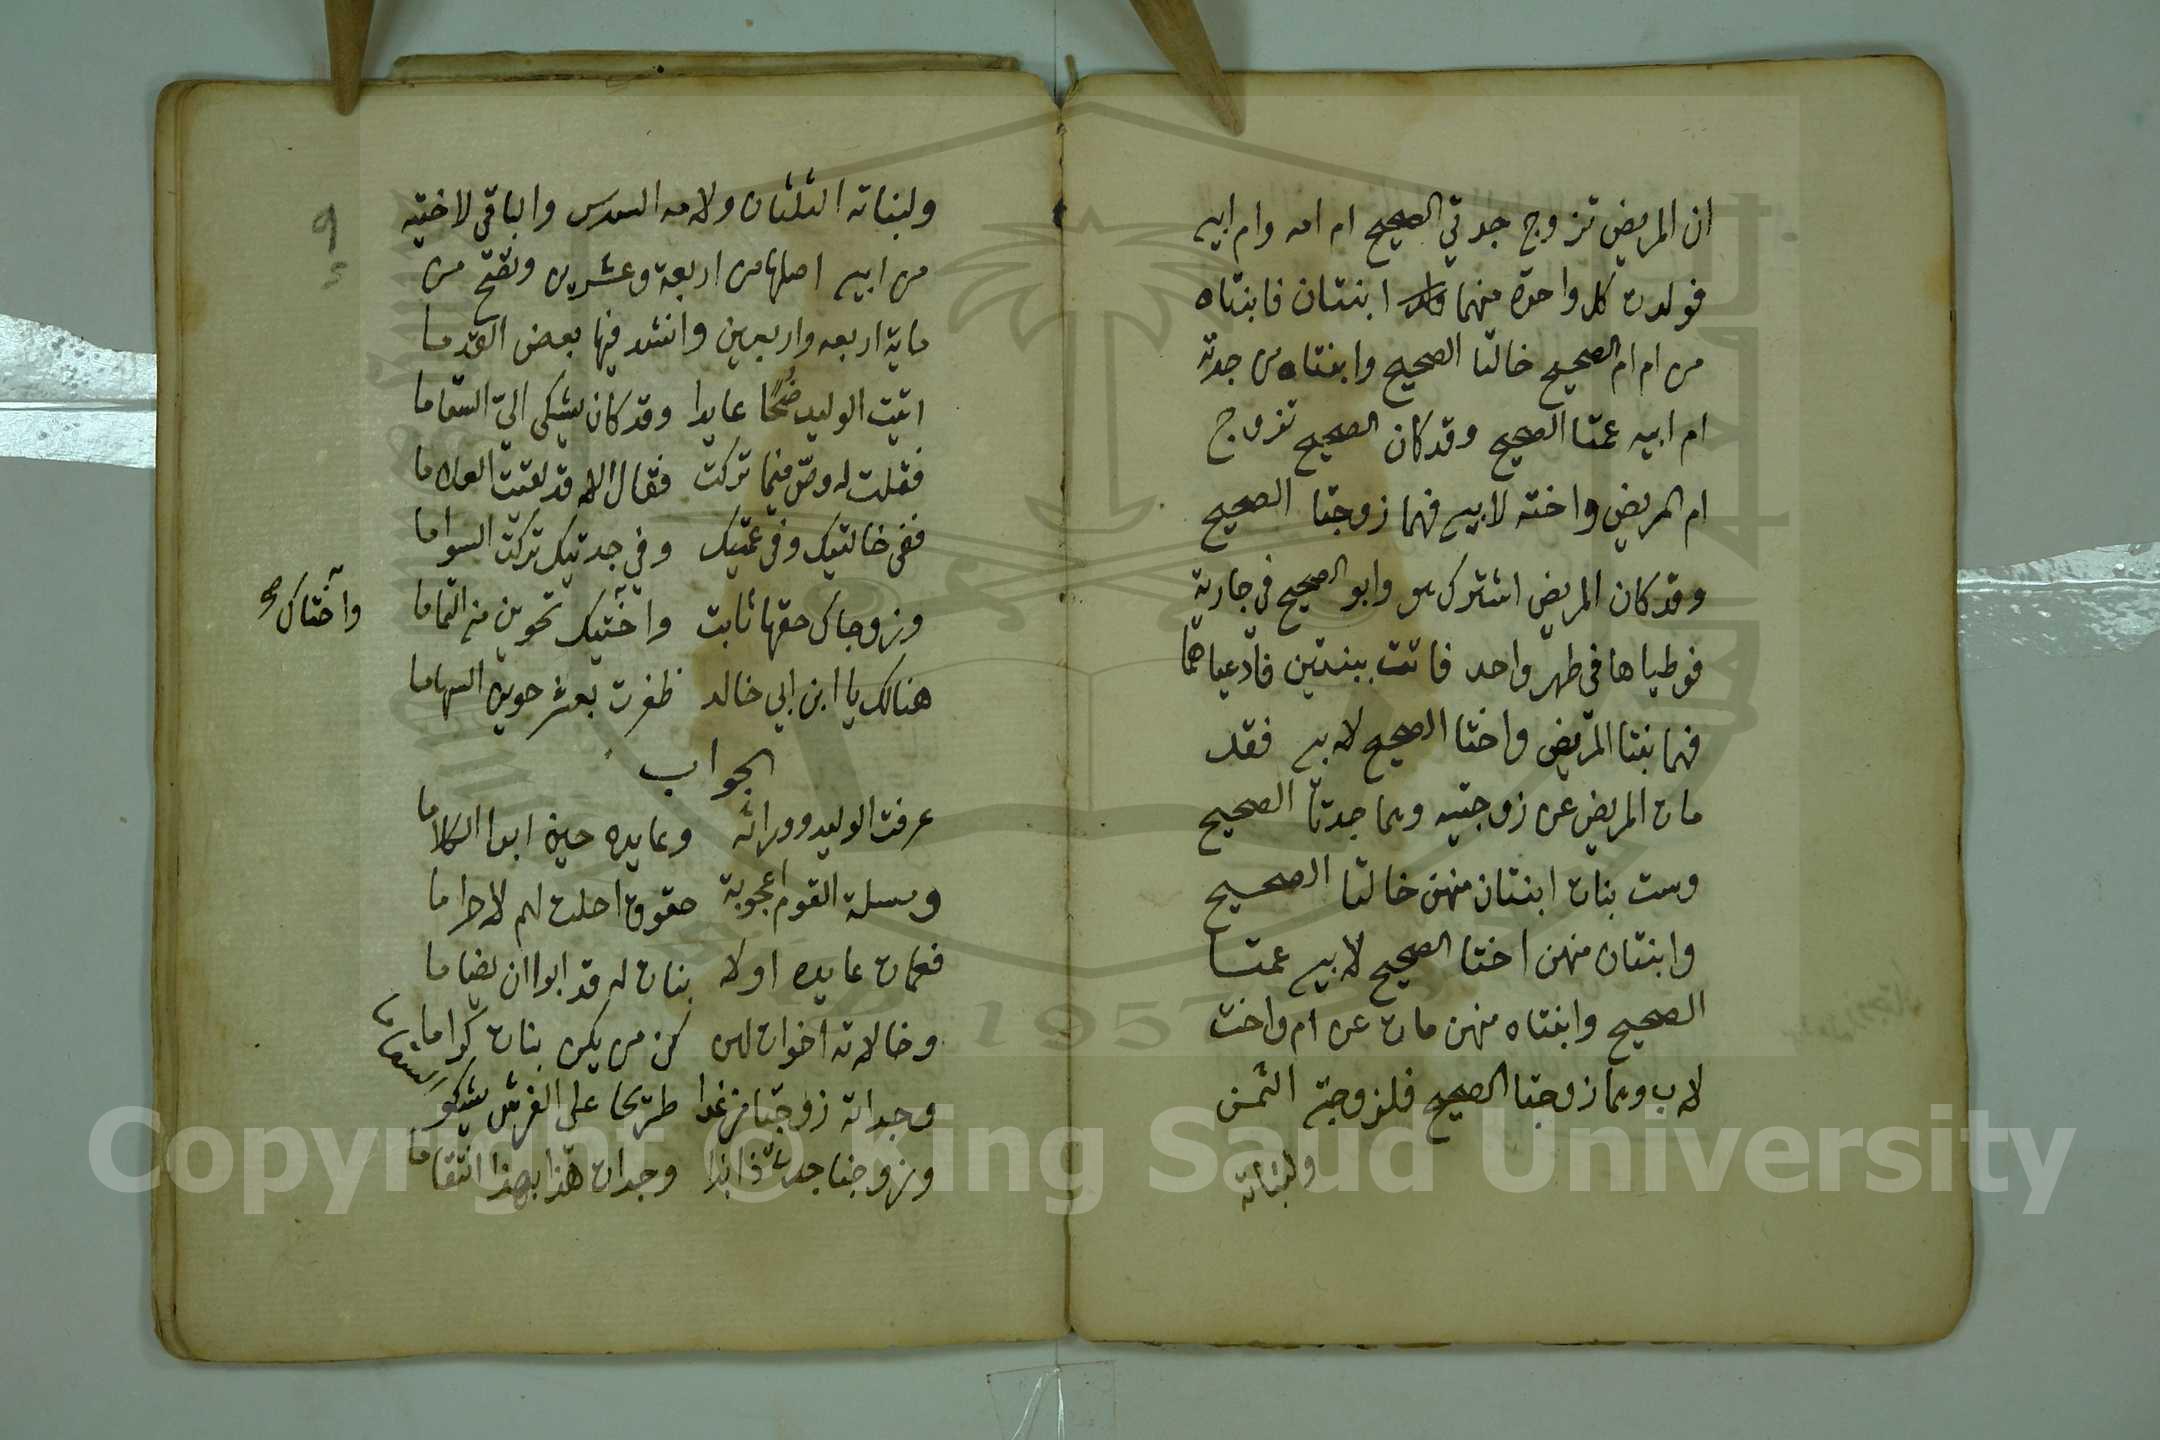 ان المريض تزوج جدتي الصحيح ام امه وام ابيه
فولدت كل واحدة منهما ابنتان فابنتاه
من ام ام الصحيح خالتا الصحيح وابنتاه من جدته
ام ابيه عمتا الصحيح وقد كان الصحيح تزوج
ام المريض واخته لابيه فهما زوجتا الصحيح
وقد كان المريض اشترك هو وابو الصحيح في جارية
فوطياها في طهر واحد فاتت ببنتين فادعياهما
فهما بنتا المريض واختا الصحيح لابيه فقد
مات المريض عن زوجتيه وهما جدتا الصحيح
وست بنات ابنتان منهن خالتا الصحيح
وابنتان منهن اختا الصحيح لابيه عمتا
الصحيح وابنتاه منهن مات عن ام واخت
لاب وهما زوجتا الصحيح فلزوجته الثمن
ولبناته
9
ولبناته الثلثان ولامه السدس والباقي لاختيه
من ابيه اصلها من اربعة وعشرين وتصح من
ماية اربعه واربعين وانشد فيها بعض القدما
اتيت الوليد ضحًا عايدا وقد كان يشكي اليّ السقاما
فقلت له وصّ فيما تركت فقال الا قد لقيت
ففي خالتيك وفي عمتيك وفي جدتيك تركت السواما
وزوجاك حقها ثابت واختيك تحوين منه التماما
واختاك صح
هنالك يا ابن ابي خالد ظفرت بعشر حوين السهاما
الجواب
عرفت الوليد ووراثه وعايده حين ابدا الكلاما
وسلة القوم اعجوبة حقوق احلت لهم لا حراما
فعمات عايده اولا بنات له قد ابوا ان يضاما
وخالاته اخوات لهن كن من يكن بنات كراما
وجداته زوجتا من غدا طريحا على الفرش يشكو السقاما
وزوجتا جدات ذا بذا وجدات هذا بهذا انتقاما
Copyright © King Saud University
1957